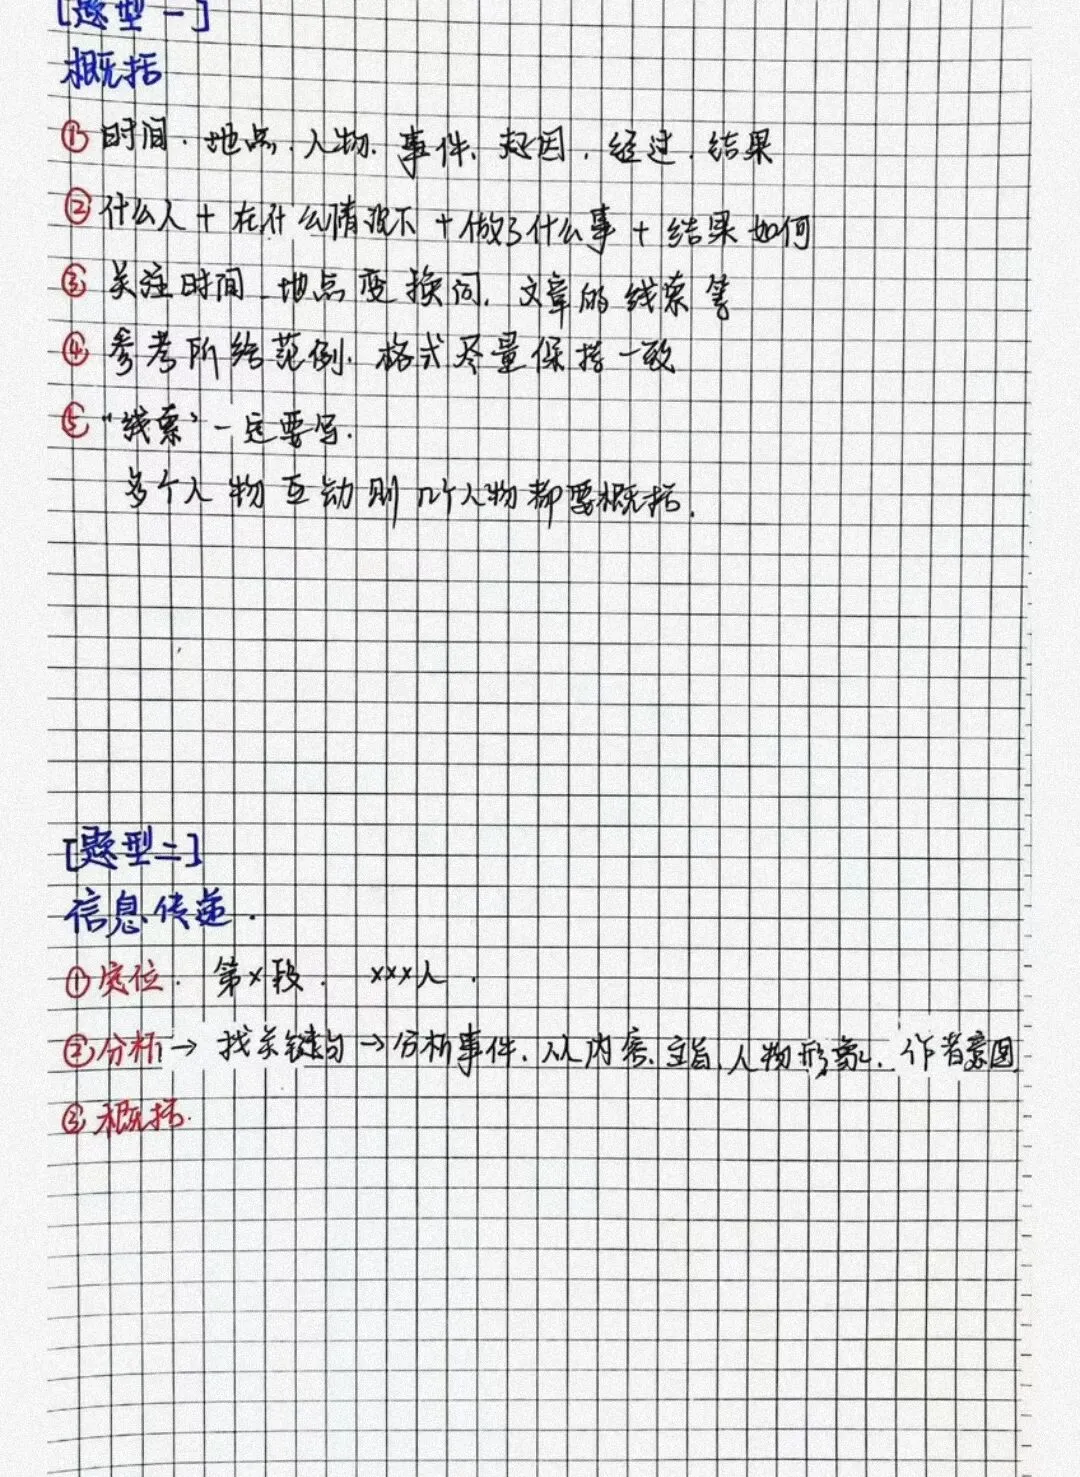 [题型一]
概括
① 时间、地点、人物、事件、起因、经过、结果
② 什么人+在什么情况下+做了什么事+结果如何
③ 关注时间、地点变换词、文章的线索等
④ 参考所给范例、格式尽量保持一致
⑤ “线索”一定要写.
多个人物互动则几个人物都要概括.
[题型二]
信息传递.
① 定位. 第x段. xxx人.
② 分析→找关键句→分析事件、从内容、主旨、人物形象、作者意图
③ 概括.